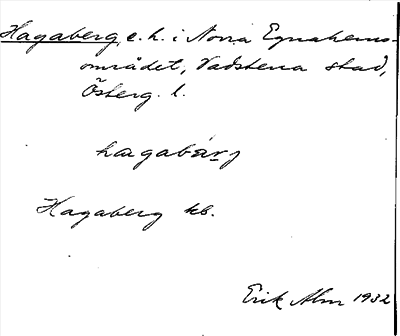 Hagaberg, e. h. i Norra Egnahems-
området, Vadstena stad,
Österg. l.
hagabærj
Hagaberg kb.
Erik Alm 1932